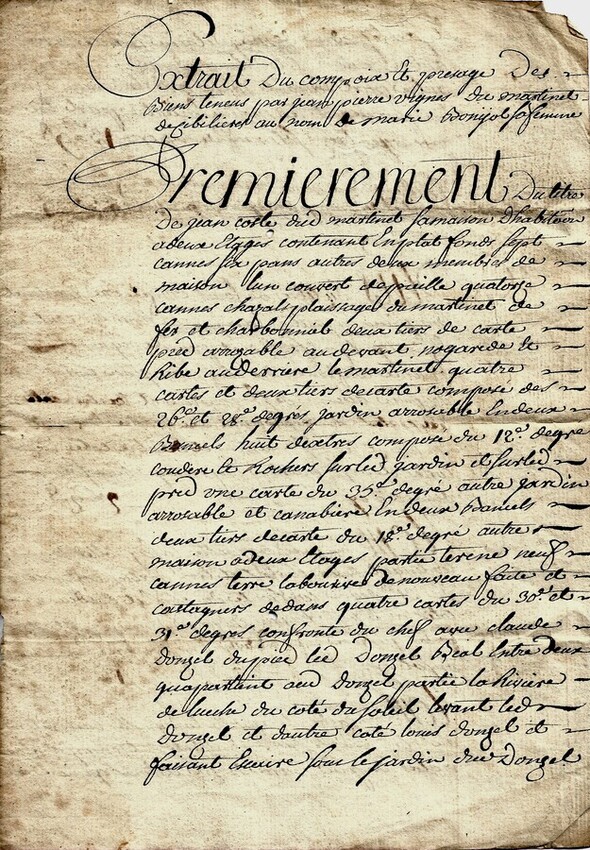 Extrait Du compoix Et presage Des
Biens tenus par jean pierre vignes du martinet
de gibilieres au nom De marie Bonijol sa femme
Premierement Du titre
De jean coste dud martinet sa maison D'habitaon
a deux Etages contenant En plat fonds sept
cannes six pans autres deux membres de
maison l'un couvert de paille quatorse
cannes chazal plaissage du martinet de
fer et charbonniere deux tiers de carte
pred arrosable au devant nogarede Et
Ribe au derriere le martinet quatre
cartes et deux tiers de carte compose des
26e et 28e degres jardin arrosable En deux
Bancels huit dextres compose du 12e degre
couderc & Rochers sur led jardin et sur led
pred une carte du 35e degré autre jardin
arrosable et canabiere En deux Bancels
deux tiers de carte du 18e degré autre
maison a deux Etages partie terene neuf
cannes terre labourive de nouveau faite et
cattagners dedans quatre cartes du 30e et
31e degres confronte du chef avec claude
Donzel du pied led Donzel Beal Entre deux
qu'apartient aud Donzel partie la Riviere
de luche du coté du soleil levant led
Donzel et d'autre coté louis donzel et
faisant Escaire sous le jardin dud Donzel